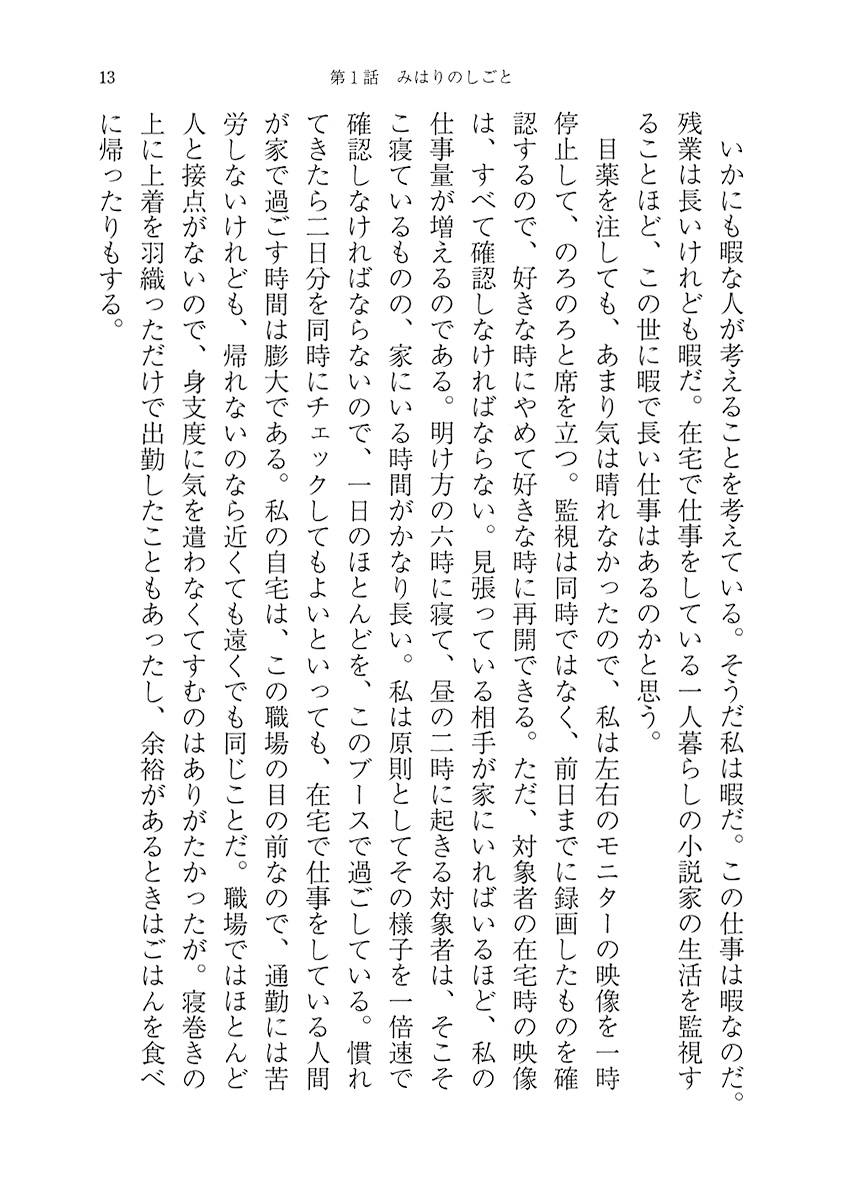 13
第1話　みはりのしごと
　いかにも暇な人が考えることを考えている。そうだ私は暇だ。この仕事は暇なのだ。
残業は長いけれども暇だ。在宅で仕事をしている一人暮らしの小説家の生活を監視す
ることほど、この世に暇で長い仕事はあるのかと思う。
　目薬を注しても、あまり気は晴れなかったので、私は左右のモニターの映像を一時
停止して、のろのろと席を立つ。監視は同時ではなく、前日までに録画したものを確
認するので、好きな時にやめて好きな時に再開できる。ただ、対象者の在宅時の映像
は、すべて確認しなければならない。見張っている相手が家にいればいるほど、私の
仕事量が増えるのである。明け方の六時に寝て、昼の二時に起きる対象者は、そこそ
こ寝ているものの、家にいる時間がかなり長い。私は原則としてその様子を一倍速で
確認しなければならないので、一日のほとんどを、このブースで過ごしている。慣れ
てきたら二日分を同時にチェックしてもよいといっても、在宅で仕事をしている人間
が家で過ごす時間は膨大である。私の自宅は、この職場の目の前なので、通勤には苦
労しないけれども、帰れないのなら近くても遠くでも同じことだ。職場ではほとんど
人と接点がないので、身支度に気を遣わなくてすむのはありがたかったが。寝巻きの
上に上着を羽織っただけで出勤したこともあったし、余裕があるときはごはんを食べ
に帰ったりもする。